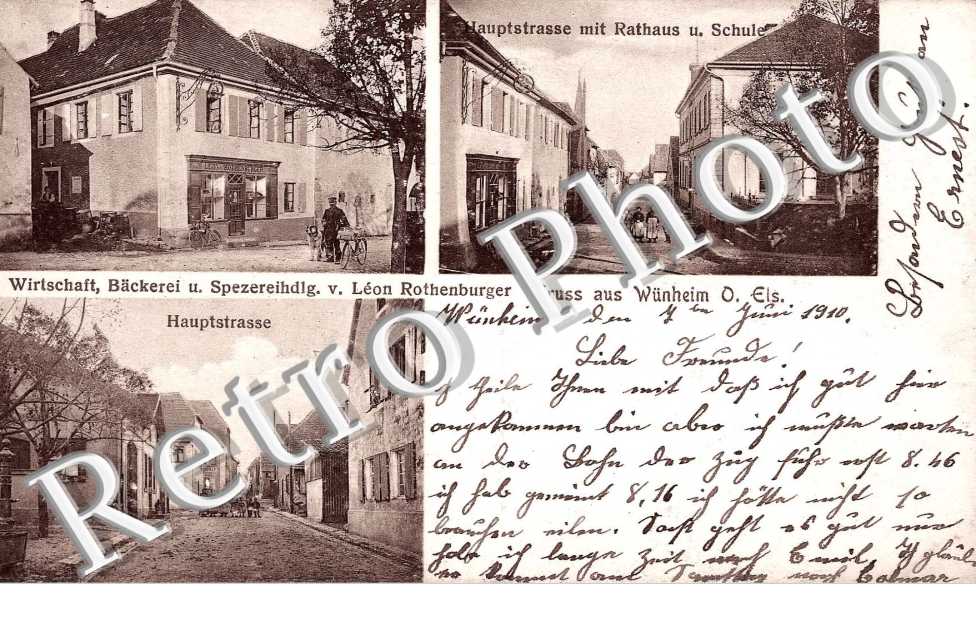 Hauptstrasse mit Rathaus u. Schule
Wirtschaft, Bäckerei u. Spezereihdlg. v. Léon Rothenburger
Gruss aus Wünheim O. Els.
Hauptstrasse
Wünheim den 7 ten Juni 1910.
Liebe Freunde!
Ich theile Ihnen mit daß ich gut hier
angekommen bin aber ich mußte warten
an der Bahn der Zug fuhr erst 8.46
ich hab gemeint 8,16 ich hätte nicht so
brauchen eilen. Sonst geht es gut nur
habe ich lange Zeit nach Emil, Ich glaube
er kommt am nach Colmar
Ernest.
Retro Photo